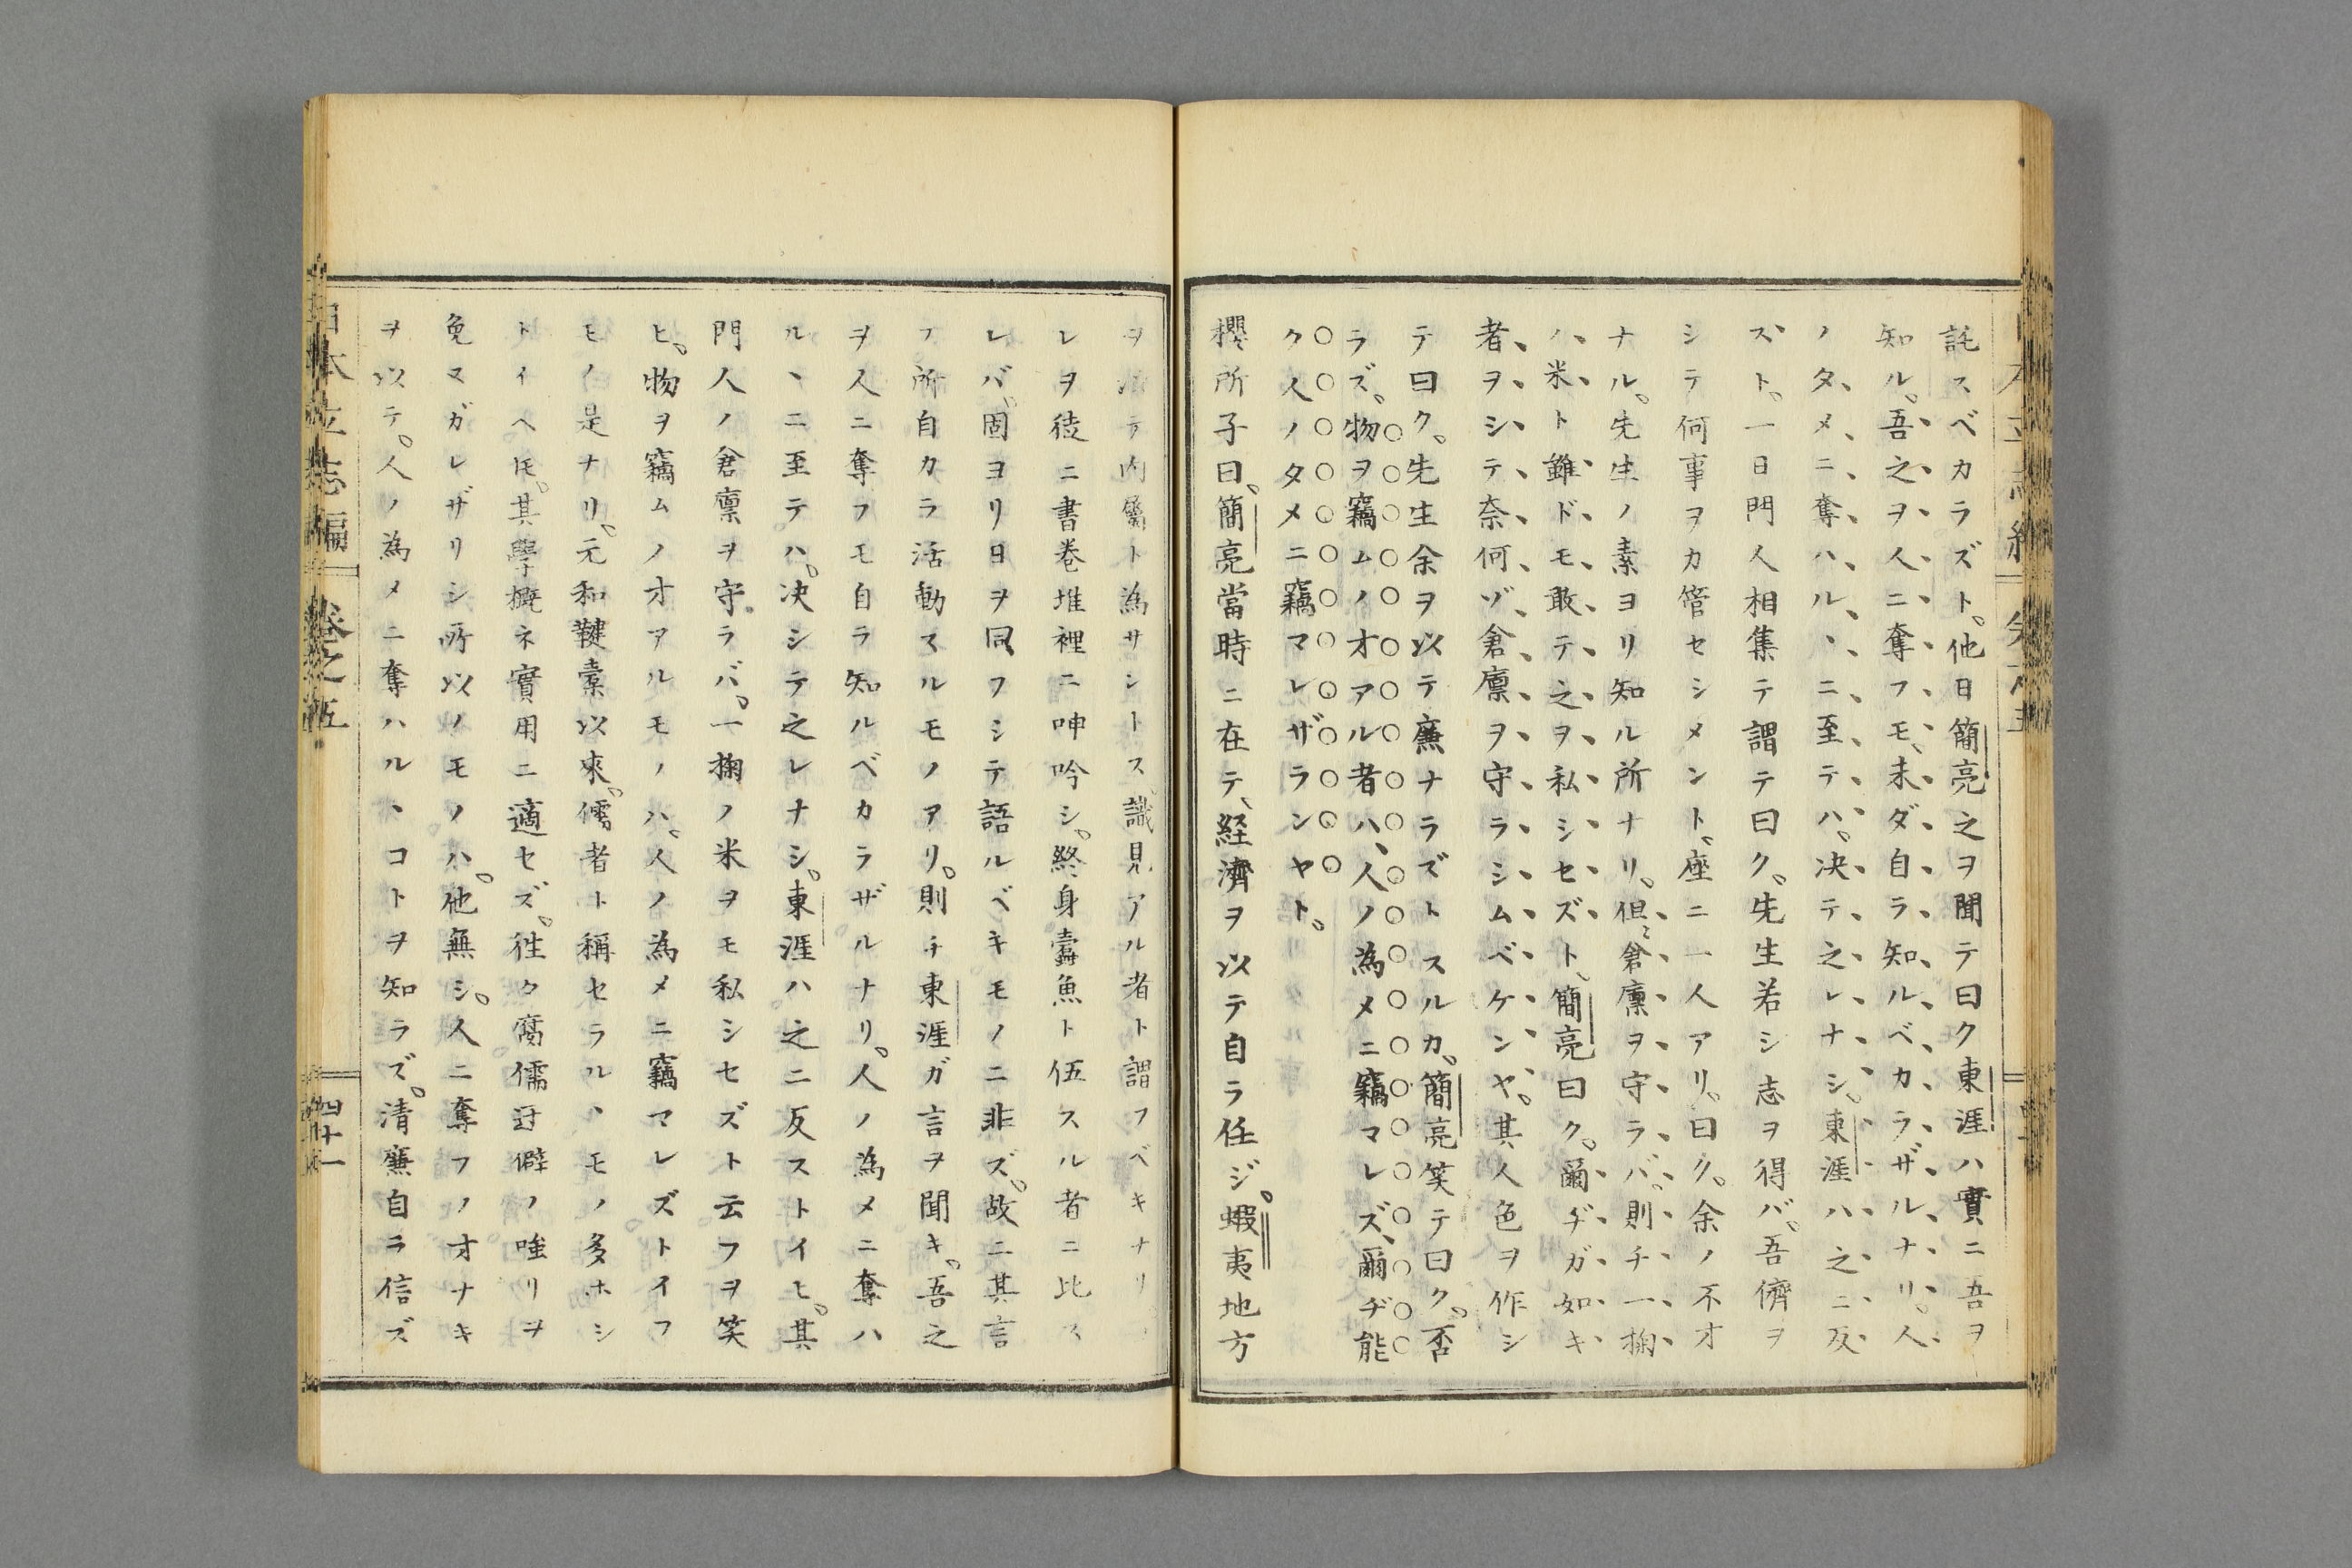 託スベカラズト。他日簡亮之ヲ聞テ曰ク東涯ハ實ニ吾ヲ
知ル。吾之ヲ人ニ奪フモ、未ダ自ラ知ルベカラザルナリ。人
ノタメニ奪ハルヽニ至テハ。决テ之レナシ。東涯ハ之ニ反
スト。一日門人相集テ謂テ曰ク。先生若シ志ヲ得バ。吾儕ヲ
シテ何事ヲカ管セシメント。座ニ一人アリ。曰ク。余ノ不才
ナル。先生ノ素ヨリ知ル所ナリ。但〻倉廪ヲ守ラバ。則チ一掬
ノ米ト雖ドモ敢テ之ヲ私シセズト、簡亮曰ク。爾ヂガ如キ
者ヲシテ奈何ゾ倉廪ヲ守ラシムベケンヤ。其人色ヲ作シ
テ曰ク。先生余ヲ以テ廉ナラズトスルカ。簡亮笑テ曰ク。否
ラズ。物ヲ竊ムノ才アル者ハ、人ノ為メニ竊マレズ、爾ヂ能
ク人ノタメニ竊マレザランヤト。
櫻所子曰。簡亮當時ニ在テ、経濟ヲ以テ自ラ任ジ。蝦夷地方
ヲ テ内屬ト為サントス、識見アル者ト謂フベキナリ
レヲ徒ニ書巻堆裡ニ呻吟シ。終身蠧魚ト伍スル者ニ比ス
レバ。固ヨリ日ヲ同フシテ語ルベキモノニ非ズ。故ニ其言
フ所自カラ活動スルモノアリ。則チ東涯ガ言ヲ聞キ。吾之
ヲ人ニ奪フモ自ラ知ルベカラザルナリ。人ノ為メニ奪ハ
ルヽニ至テハ。决シテ之レナシ。東涯ハ之ニ反ストイヒ。其
門人ノ倉廪ヲ守ラバ。一掬ノ米ヲモ私シセズト云フヲ笑
ヒ。物ヲ竊ムノ才アルモノハ、人ノ為メニ竊マレズトイフ
モノ是ナリ。元和鞬櫜以來。儒者ト稱セラルヽモノ多ホシ
トイヘ𪜈。其學概ネ實用ニ適セズ。徃ク腐儒迂僻ノ嗤リヲ
免ヌガレザリシ所以ノモノハ。他無シ。人ニ奪フノ才ナキ
ヲ以テ。人ノ為メニ奪ハルヽコトヲ知ラズ。清廉自ラ信ズ
日本立志編 巻之五 四十一